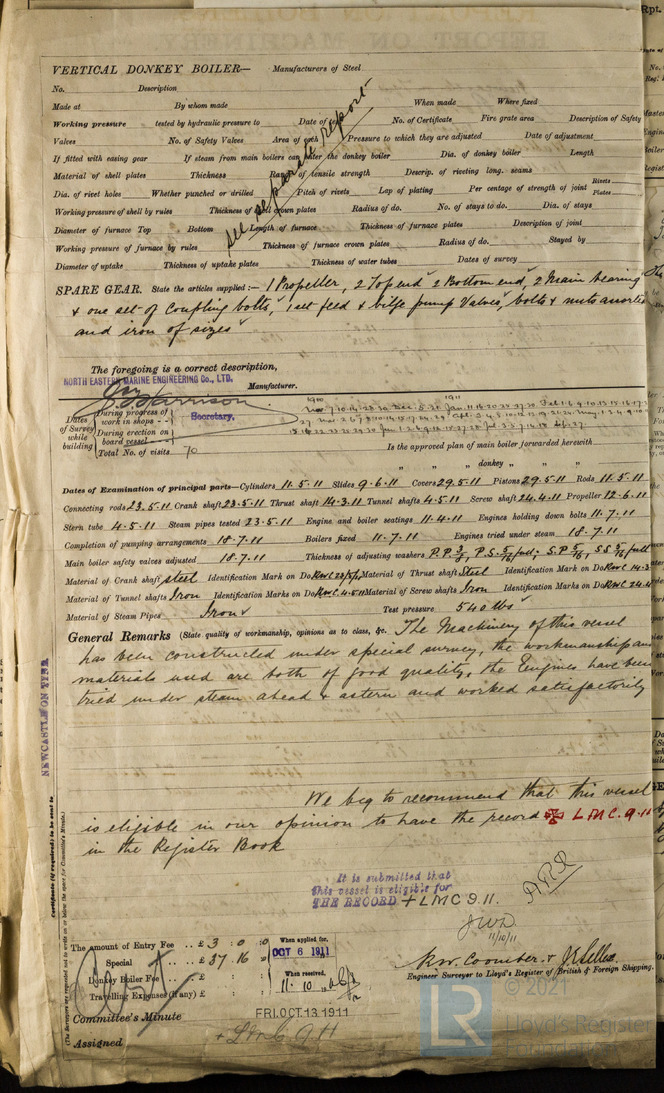 VERTICAL DONKEY BOILER— Manufacturers of Steel
No. Description
Made at By whom made When made Where fixed
Working pressure tested by hydraulic pressure to Date of test No. of Certificate Fire grate area Description of Safety
Valves No. of Safety Valves Area of each Pressure to which they are adjusted Date of adjustment
If fitted with easing gear If steam from main boilers can enter the donkey boiler Dia. of donkey boiler Length
Material of shell plates Thickness Range of tensile strength Descrip. of riveting long. seams
Dia. of rivet holes Whether punched or drilled Pitch of rivets Lap of plating Per centage of strength of joint Rivets Plates
Working pressure of shell by rules Thickness of shell crown plates Radius of do. No. of stays to do. Dia. of stays
Diameter of furnace Top Bottom Length of furnace Thickness of furnace plates Description of joint
Working pressure of furnace by rules Thickness of furnace crown plates Radius of do. Stayed by
Diameter of uptake Thickness of uptake plates Thickness of water tubes Dates of survey
see separate report
SPARE GEAR. State the articles supplied:— 1 Propeller, 2 Top end 2 Bottom end, 2 Main bearing
& one set of Coupling bolts, 1 set feed & bilge pump Valves, bolts & nuts assorted
and iron of sizes
The foregoing is a correct description,
NORTH EASTERN MARINE ENGINEERING Co., LTD. Manufacturer.
Harrison
Secretary.
Dates of Survey while building
During progress of work in shops - -
During erection on board vessel
Total No. of visits 70
1910 1911
Is the approved plan of main boiler forwarded herewith
" " donkey " " "
Dates of Examination of principal parts—Cylinders 11.5.11 Slides 9.6.11 Covers 29.5.11 Pistons 29.5.11 Rods 11.5.11
Connecting rods 23.5.11 Crank shaft 23.5.11 Thrust shaft 14.3.11 Tunnel shafts 4.5.11 Screw shaft 24.4.11 Propeller 12.6.11
Stern tube 4.5.11 Steam pipes tested 23.5.11 Engine and boiler seatings 11.4.11 Engines holding down bolts 11.7.11
Completion of pumping arrangements 18.7.11 Boilers fixed 11.7.11 Engines tried under steam 18.7.11
Main boiler safety valves adjusted 18.7.11 Thickness of adjusting washers
Material of Crank shaft Steel Identification Mark on Do. Material of Thrust shaft Steel Identification Mark on Do. RWC 14.3
Material of Tunnel shafts Iron Identification Marks on Do. RWC 4.5.11 Material of Screw shafts Iron Identification Marks on Do. RWC 24.4
Material of Steam Pipes Iron Test pressure 540 lbs
General Remarks (State quality of workmanship, opinions as to class, &c. The Machinery of this vessel
has been constructed under special survey, the workmanship and
materials used are both of good quality, the Engines have been
tried under steam ahead & astern and worked satisfactorily
NEWCASTLE ON TYNE
We beg to recommend that this vessel
is eligible in our opinion to have the record ✠ LMC. 9.11
in the Register Book
It is submitted that
this vessel is eligible for
THE RECORD + LMC 9.11.
JWD
11/10/11
Certificate (if required) to be sent to
(The Surveyors are requested not to write on or below the space for Committee's Minute.)
The amount of Entry Fee . . £ 3 : 0 : 0 When applied for,
Special . . . . £ 37 : 16 : OCT 6 1911
Donkey Boiler Fee . . . £ : : When received,
Travelling Expenses (if any) £ : : 11.10
RW. Coomber & J Sellex
Engineer Surveyor to Lloyd's Register of British & Foreign Shipping.
Committee's Minute FRI. OCT. 13 1911
Assigned + LMC 9.11
LR
© 2021
Lloyd's Register
Foundation